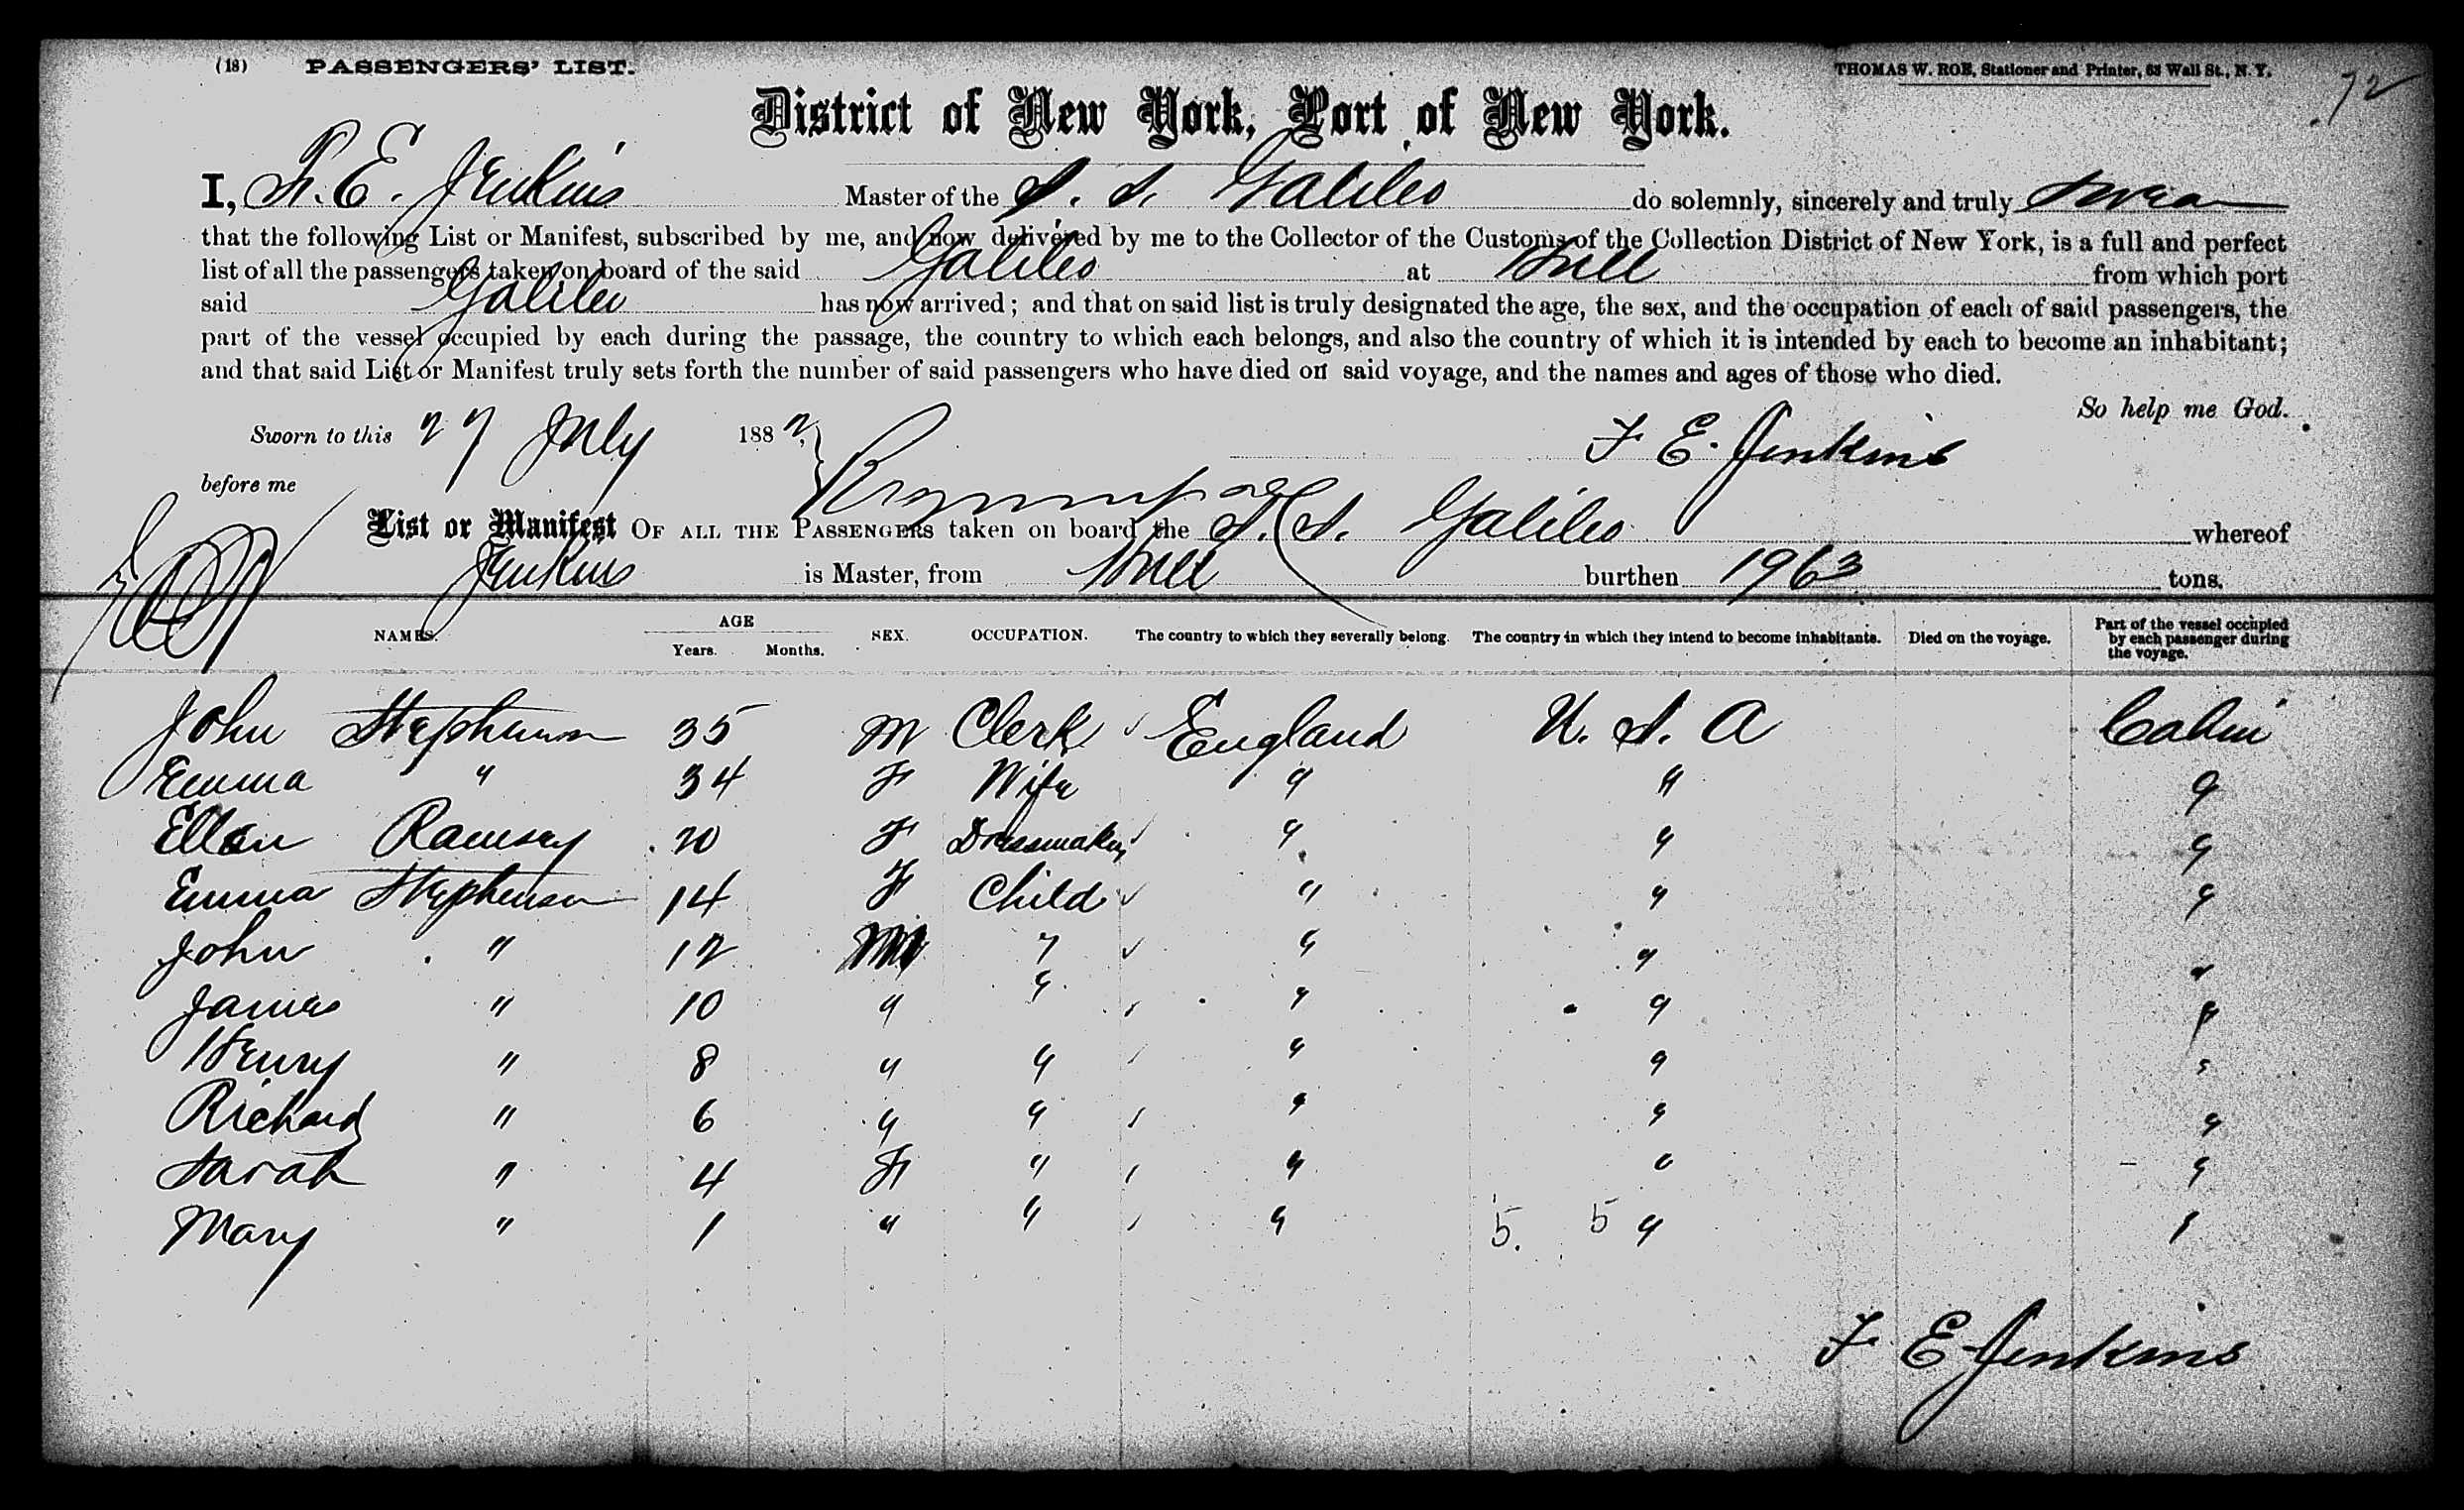 (18) PASSENGERS' LIST.
THOMAS W. ROE, Stationer and Printer, 63 Wall St., N. Y.
72
District of New York, Port of New York.
I, F. E. Jenkins Master of the S. S. Galileo do solemnly, sincerely and truly swear
that the following List or Manifest, subscribed by me, and now delivered by me to the Collector of the Customs of the Collection District of New York, is a full and perfect
list of all the passengers taken on board of the said Galileo at Hull from which port
said Galileo has now arrived; and that on said list is truly designated the age, the sex, and the occupation of each of said passengers, the
part of the vessel occupied by each during the passage, the country to which each belongs, and also the country of which it is intended by each to become an inhabitant;
and that said List or Manifest truly sets forth the number of said passengers who have died on said voyage, and the names and ages of those who died.
So help me God.
Sworn to this 27 July 1882 F E. Jenkins
before me
List or Manifest OF ALL THE PASSENGERS taken on board the S. S. Galileo whereof
Jenkins is Master, from Hull burthen 1963 tons.
NAMES. AGE Years. Months. SEX. OCCUPATION. The country to which they severally belong. The country in which they intend to become inhabitants. Died on the voyage. Part of the vessel occupied by each passenger during the voyage.
John Stephenson 35 M Clerk England U. S. A Cabin
Emma " 34 F Wife " " "
Ellen Ramsey 20 F Dressmaker " " "
Emma Stephenson 14 F Child " " "
John " 12 M " " " "
James " 10 " " " " "
Henry " 8 " " " " "
Richard " 6 " " " " "
Sarah " 4 F " " " "
Mary " 1 " " " 5. 5 " "
F E Jenkins